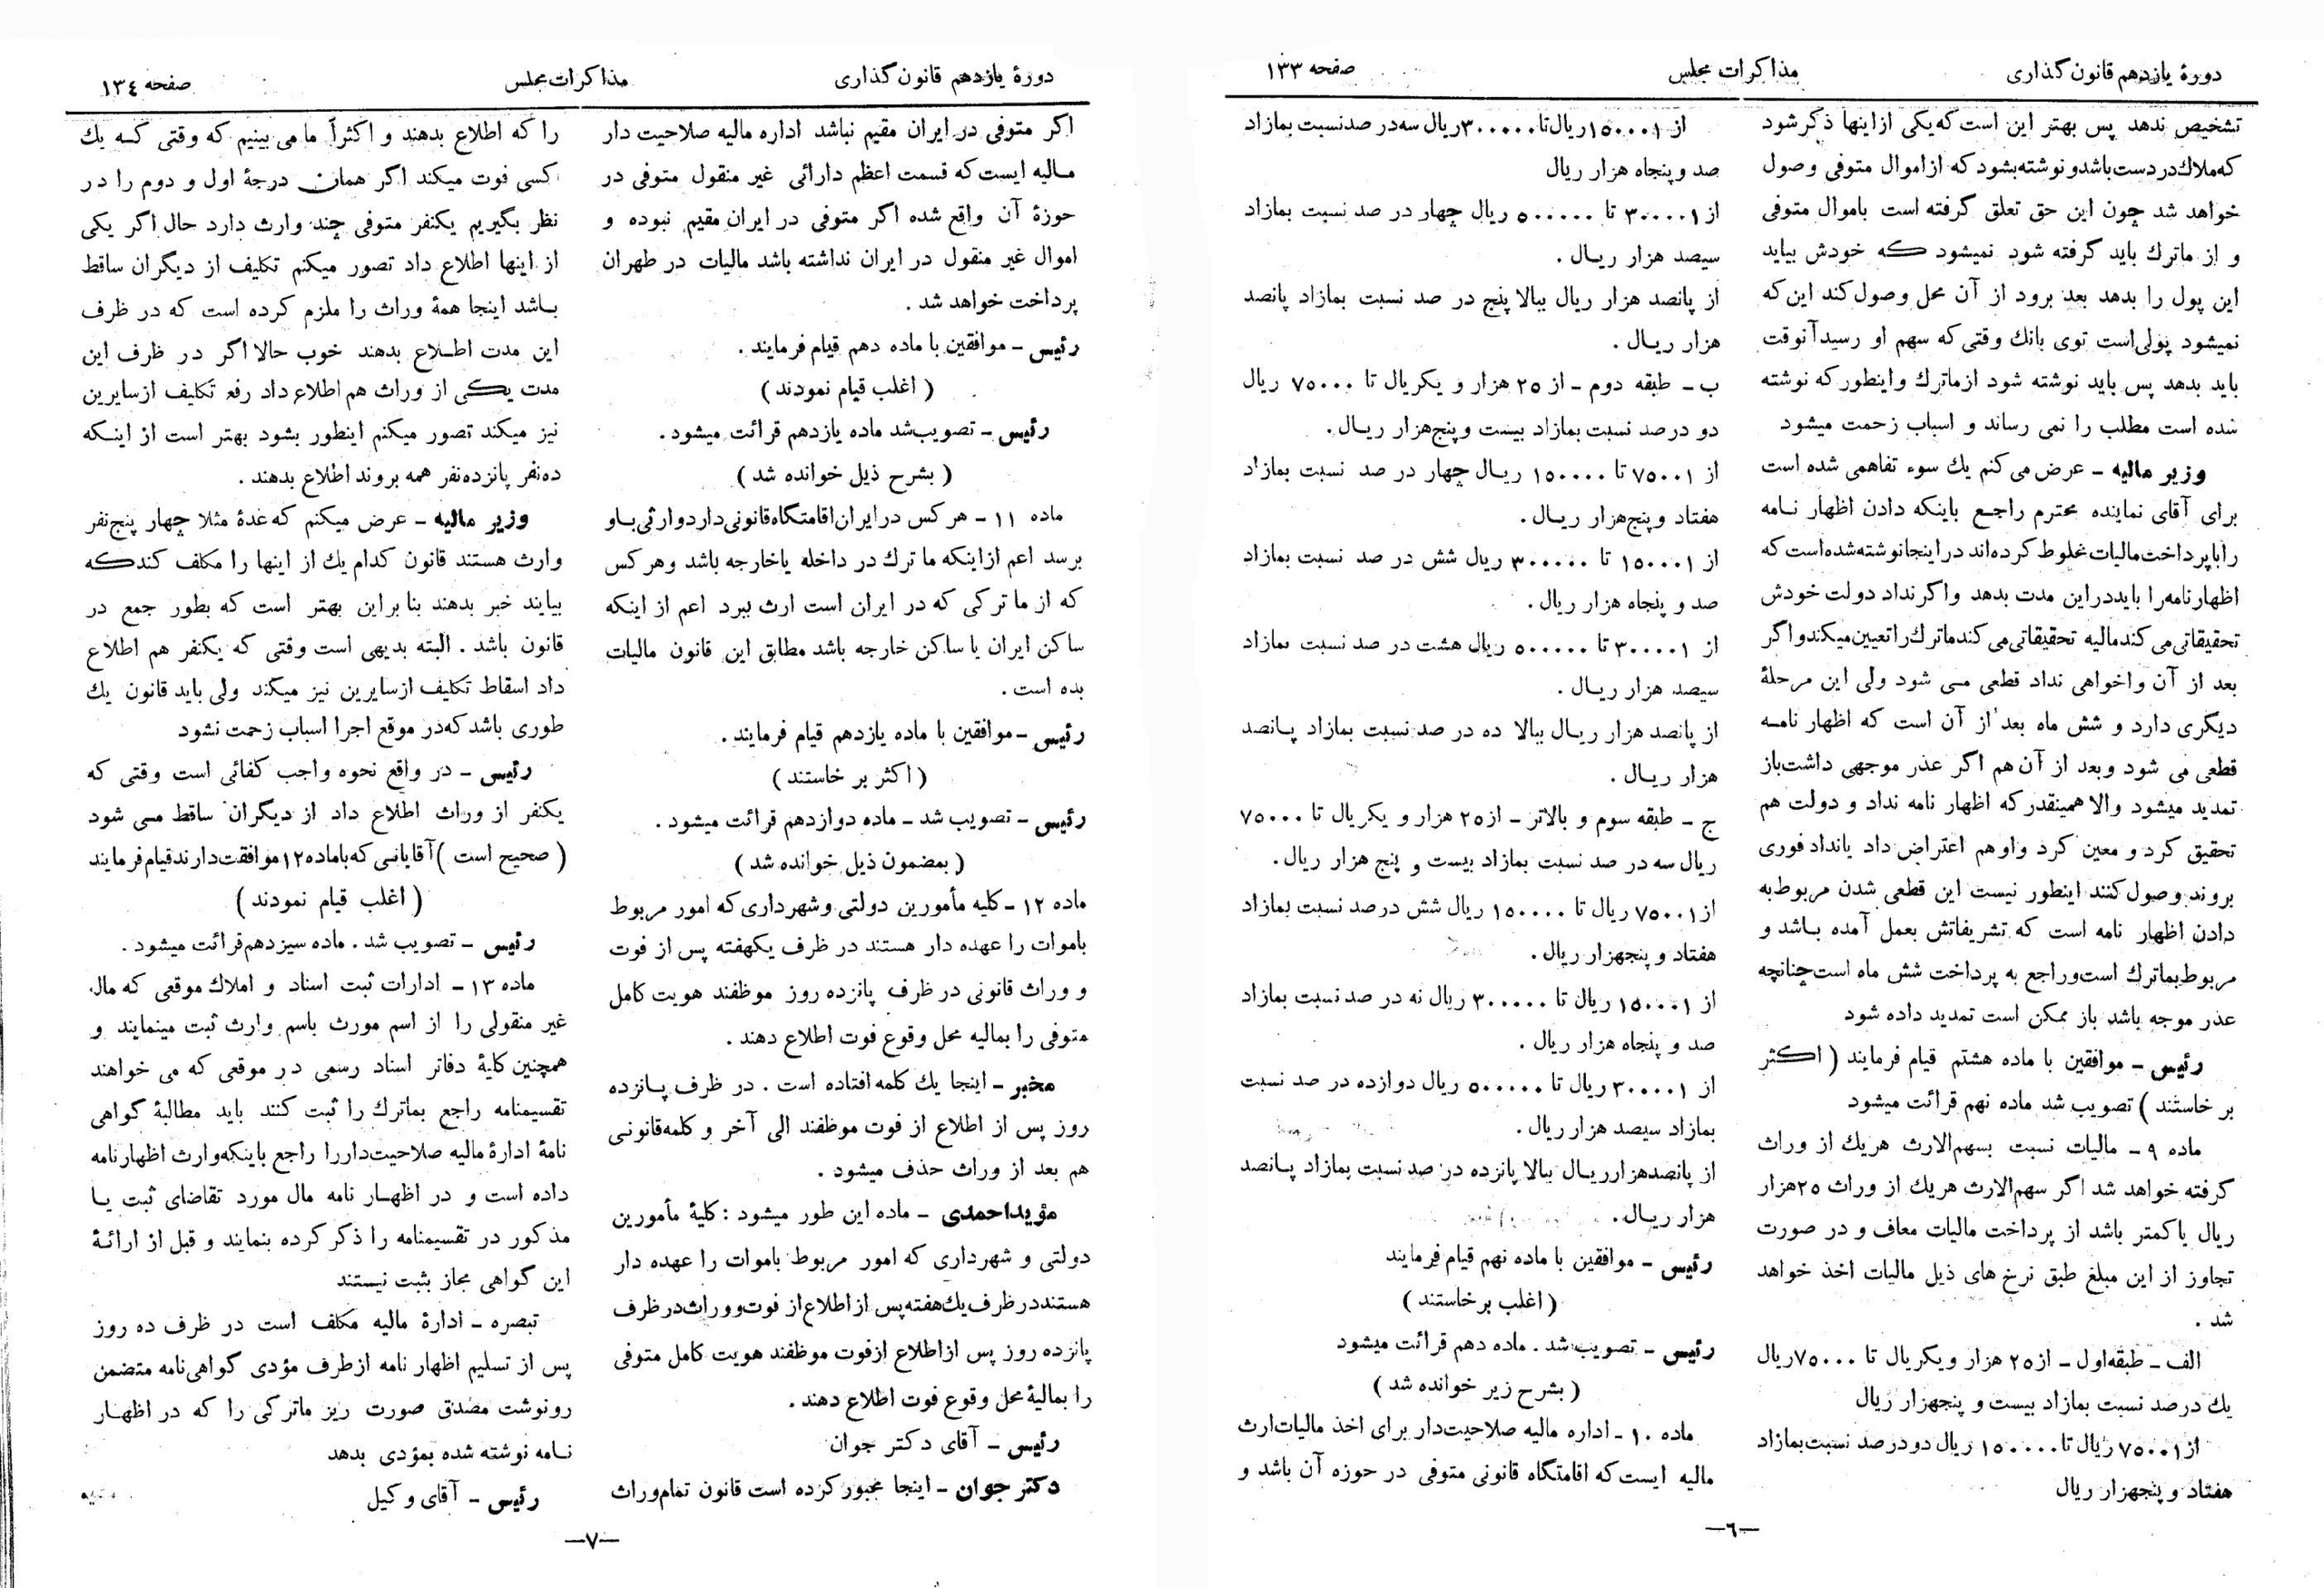 دورهٔ یازدهم قانون گذاری
مذاکرات مجلس
صفحه ۱۳۳
تشخیص ندهد پس بهتر این است که یکی از اینها ذکر شود
که ملاك در دست باشد و نوشته بشود که از اموال متوفی وصول
خواهد شد چون این حق تعلق گرفته است باموال متوفی
و از ماترك باید گرفته شود نمیشود که خودش بیاید
این پول را بدهد بعد برود از آن محل وصول کند این که
نمیشود پولی است توی بانك وقتی که سهم او رسید آنوقت
باید بدهد پس باید نوشته شود از ماترك و اینطور که نوشته
شده است مطلب را نمی رساند و اسباب زحمت میشود
وزیر مالیه - عرض می کنم یك سوء تفاهمی شده است
برای آقای نماینده محترم راجع باینکه دادن اظهار نامه
را با پرداخت مالیات غلوط کرده‌اند در اینجا نوشته شده است که
اظهار نامه را باید در این مدت بدهد و اگر نداد دولت خودش
تحقیقاتی می کند مالیه تحقیقاتی می کند ماترك را تعیین میکند و اگر
بعد از آن واخواهی نداد قطعی می شود ولی این مرحلهٔ
دیگری دارد و شش ماه بعد از آن است که اظهار نامه
قطعی می شود و بعد از آن هم اگر عذر موجهی داشت باز
تمدید میشود والا همینقدر که اظهار نامه نداد و دولت هم
تحقیق کرد و معین کرد و او هم اعتراض داد یا نداد فوری
بروند وصول کنند اینطور نیست این قطعی شدن مربوط به
دادن اظهار نامه است که تشریفاتش بعمل آمده باشد و
مربوط بماترك است و راجع به پرداخت شش ماه است چنانچه
عذر موجه باشد باز ممکن است تمدید داده شود
رئیس - موافقین با ماده هشتم قیام فرمایند ( اکثر
بر خاستند ) تصویب شد ماده نهم قرائت میشود
ماده ۹ - مالیات نسبت بسهم‌الارث هریك از وراث
گرفته خواهد شد اگر سهم‌الارث هریك از وراث ۲۵هزار
ریال یا کمتر باشد از پرداخت مالیات معاف و در صورت
تجاوز از این مبلغ طبق نرخ های ذیل مالیات اخذ خواهد
شد .
الف - طبقه اول - از ۲۵ هزار و یکریال تا ۷۵۰۰۰ریال
یك درصد نسبت بمازاد بیست و پنجهزار ریال
از ۷۵۰۰۱ ریال تا ۱۵۰۰۰۰ ریال دو درصد نسبت بمازاد
هفتاد و پنجهزار ریال
از ۱۵۰۰۰۱ریال تا ۳۰۰۰۰۰ریال سه در صد نسبت بمازاد
صد و پنجاه هزار ریال
از ۳۰۰۰۰۱ تا ۵۰۰۰۰۰ ریال چهار در صد نسبت بمازاد
سیصد هزار ریال .
از پانصد هزار ریال ببالا پنج در صد نسبت بمازاد پانصد
هزار ریال .
ب - طبقه دوم - از ۲۵ هزار و یکریال تا ۷۵۰۰۰ ریال
دو درصد نسبت بمازاد بیست و پنج هزار ریال .
از ۷۵۰۰۱ تا ۱۵۰۰۰۰ ریال چهار در صد نسبت بمازاد
هفتاد و پنج هزار ریال .
از ۱۵۰۰۰۱ تا ۳۰۰۰۰۰ ریال شش در صد نسبت بمازاد
صد و پنجاه هزار ریال .
از ۳۰۰۰۰۱ تا ۵۰۰۰۰۰ ریال هشت در صد نسبت بمازاد
سیصد هزار ریال .
از پانصد هزار ریال ببالا ده در صد نسبت بمازاد پانصد
هزار ریال .
ج - طبقه سوم و بالاتر - از ۲۵ هزار و یکریال تا ۷۵۰۰۰
ریال سه در صد نسبت بمازاد بیست و پنج هزار ریال .
از ۷۵۰۰۱ ریال تا ۱۵۰۰۰۰ ریال شش درصد نسبت بمازاد
هفتاد و پنجهزار ریال .
از ۱۵۰۰۰۱ ریال تا ۳۰۰۰۰۰ ریال نه در صد نسبت بمازاد
صد و پنجاه هزار ریال .
از ۳۰۰۰۰۱ ریال تا ۵۰۰۰۰۰ ریال دوازده در صد نسبت
بمازاد سیصد هزار ریال .
از پانصدهزار ریال ببالا پانزده در صد نسبت بمازاد پانصد
هزار ریال .
رئیس - موافقین با ماده نهم قیام فرمایند
( اغلب برخاستند )
رئیس - تصویب شد . ماده دهم قرائت میشود
( بشرح زیر خوانده شد )
ماده ۱۰ - اداره مالیه صلاحیت‌دار برای اخذ مالیات ارث
مالیه ایست که اقامتگاه قانونی متوفی در حوزه آن باشد و
-۶-
دورهٔ یازدهم قانون گذاری
مذاکرات مجلس
صفحه ۱۳۴
اگر متوفی در ایران مقیم نباشد اداره مالیه صلاحیت دار
مالیه ایست که قسمت اعظم دارائی غیر منقول متوفی در
حوزهٔ آن واقع شده اگر متوفی در ایران مقیم نبوده و
اموال غیر منقول در ایران نداشته باشد مالیات در طهران
پرداخت خواهد شد .
رئیس - موافقین با ماده دهم قیام فرمایند .
( اغلب قیام نمودند )
رئیس - تصویب شد ماده یازدهم قرائت میشود .
( بشرح ذیل خوانده شد )
ماده ۱۱ - هر کس در ایران اقامتگاه قانونی دارد و ارثی باو
برسد اعم از اینکه ما ترك در داخله یا خارجه باشد و هر کس
که از ما ترکی که در ایران است ارث ببرد اعم از اینکه
ساکن ایران یا ساکن خارجه باشد مطابق این قانون مالیات
بده است .
رئیس - موافقین با ماده یازدهم قیام فرمایند .
( اکثر بر خاستند )
رئیس - تصویب شد - ماده دوازدهم قرائت میشود .
( بمضمون ذیل خوانده شد )
ماده ۱۲ - کلیه مأمورین دولتی و شهرداری که امور مربوط
باموات را عهده دار هستند در ظرف یکهفته پس از فوت
و وراث قانونی در ظرف پانزده روز موظفند هویت کامل
متوفی را بمالیه محل وقوع فوت اطلاع دهند .
مخبر - اینجا یك کلمه افتاده است . در ظرف پانزده
روز پس از اطلاع از فوت موظفند الی آخر و کلمه قانونی
هم بعد از وراث حذف میشود .
مؤید احمدی - ماده این طور میشود : کلیهٔ مأمورین
دولتی و شهرداری که امور مربوط باموات را عهده دار
هستند در ظرف یك هفته پس از اطلاع از فوت و وراث در ظرف
پانزده روز پس از اطلاع از فوت موظفند هویت کامل متوفی
را بمالیهٔ محل وقوع فوت اطلاع دهند .
رئیس - آقای دکتر جوان
دکتر جوان - اینجا مجبور کرده است قانون تمام وراث
را که اطلاع بدهند و اکثراً ما می بینیم که وقتی که یك
کسی فوت میکند اگر همان درجهٔ اول و دوم را در
نظر بگیریم یکنفر متوفی چند وارث دارد حال اگر یکی
از اینها اطلاع داد تصور میکنم تکلیف از دیگران ساقط
باشد اینجا همهٔ وراث را ملزم کرده است که در ظرف
این مدت اطلاع بدهند خوب حالا اگر در ظرف این
مدت یکی از وراث هم اطلاع داد رفع تکلیف از سایرین
نیز میکند تصور میکنم اینطور بشود بهتر است از اینکه
ده نفر پانزده نفر همه بروند اطلاع بدهند .
وزیر مالیه - عرض میکنم که عدهٔ مثلا چهار پنج نفر
وارث هستند قانون کدام یك از اینها را مکلف کند که
بیایند خبر بدهند بنا براین بهتر است که بطور جمع در
قانون باشد . البته بدیهی است وقتی که یکنفر هم اطلاع
داد اسقاط تکلیف از سایرین نیز میکند ولی باید قانون یك
طوری باشد که در موقع اجرا اسباب زحمت نشود
رئیس - در واقع نحوه واجب کفائی است وقتی که
یکنفر از وراث اطلاع داد از دیگران ساقط می شود
( صحیح است ) آقایانی که با ماده ۱۲ موافقت دارند قیام فرمایند
( اغلب قیام نمودند )
رئیس - تصویب شد . ماده سیزدهم قرائت میشود .
ماده ۱۳ - ادارات ثبت اسناد و املاك موقعی که مال
غیر منقولی را از اسم مورث باسم وارث ثبت مینمایند و
همچنین کلیهٔ دفاتر اسناد رسمی در موقعی که می خواهند
تقسیمنامه راجع بماترك را ثبت کنند باید مطالبهٔ گواهی
نامهٔ ادارهٔ مالیه صلاحیت‌دار را راجع باینکه وارث اظهار نامه
داده است و در اظهار نامه مال مورد تقاضای ثبت یا
مذکور در تقسیمنامه را ذکر کرده بنمایند و قبل از ارائهٔ
این گواهی مجاز بثبت نیستند
تبصره - ادارهٔ مالیه مکلف است در ظرف ده روز
پس از تسلیم اظهار نامه از طرف مؤدی گواهی نامه متضمن
رونوشت مصدق صورت ریز ماترکی را که در اظهار
نامه نوشته شده بمؤدی بدهد
رئیس - آقای وکیل
-۷-